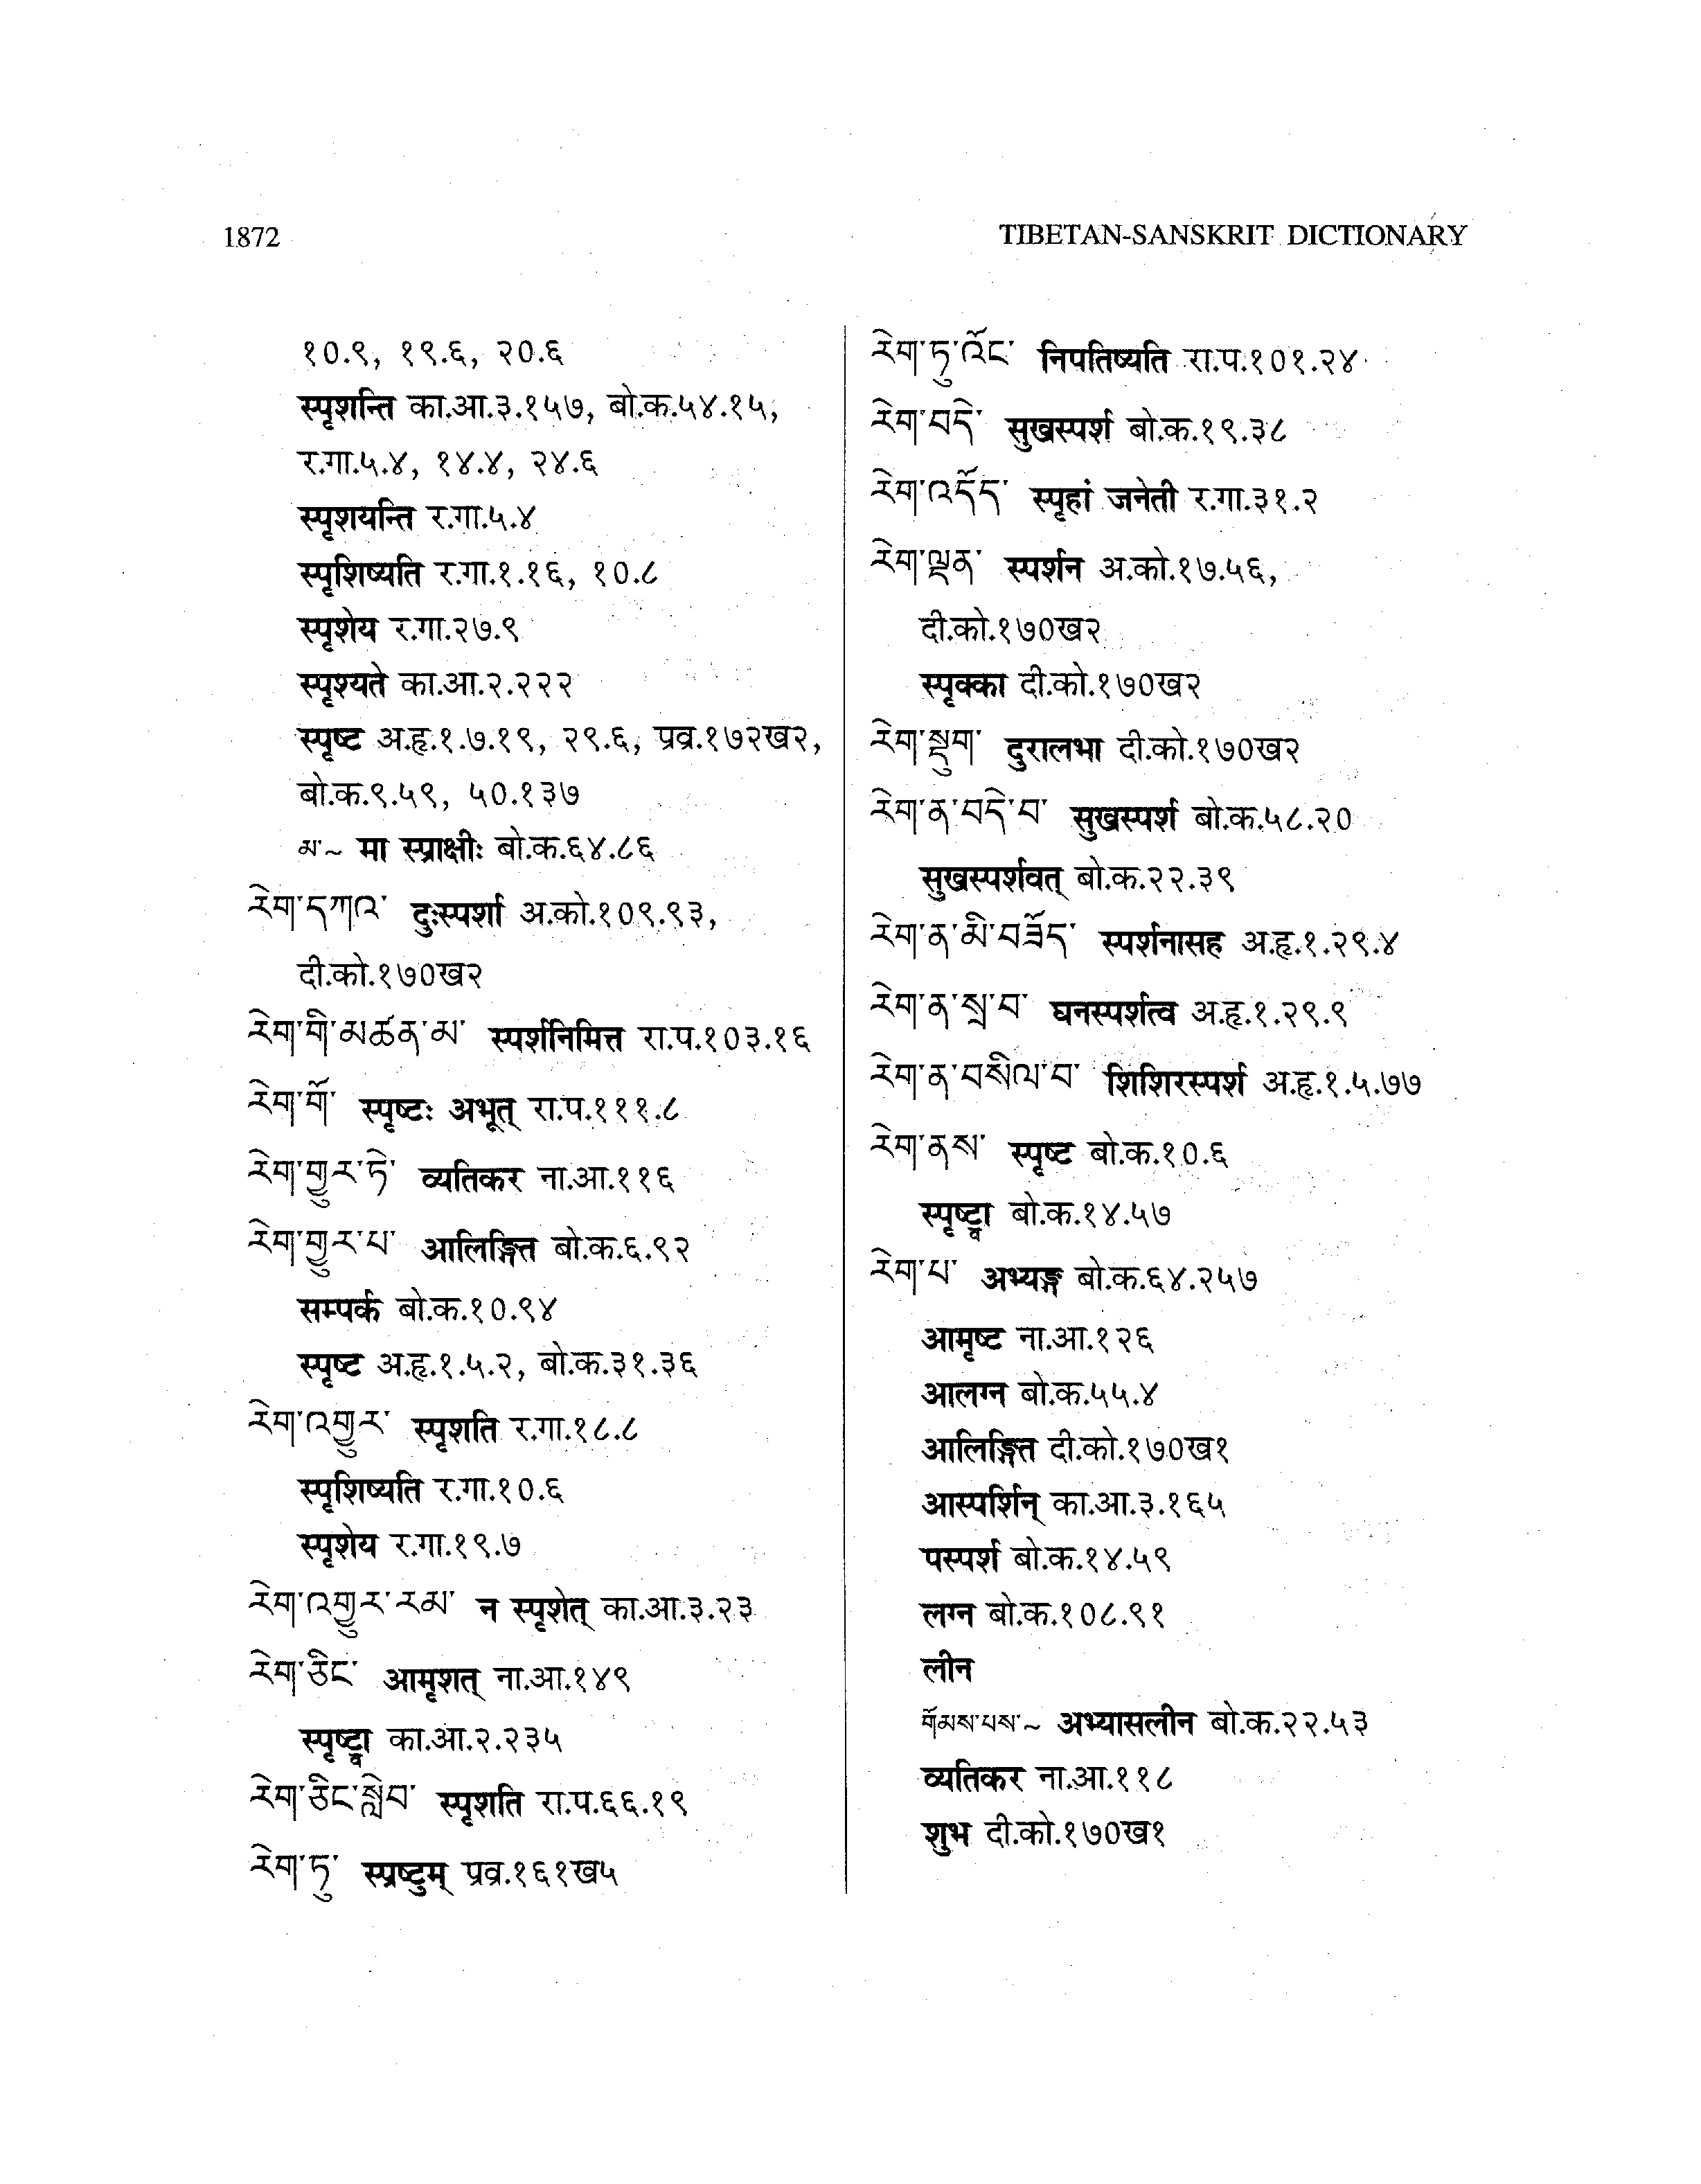 1872
TIBETAN-SANSKRIT DICTIONARY
१०.९, १९.६, २०.६
स्पृशन्ति का.आ.३.१५७, बो.क.५४.१५,
र.गा.५.४, १४.४, २४.६
स्पृशयन्ति र.गा.५.४
स्पृशिष्यति र.गा.१.१६, १०.८
स्पृशेय र.गा.२७.९
स्पृश्यते का.आ.२.२२२
स्पृष्ट अ.हृ.१.७.१९, २९.६, प्रव्र.१७२ख२,
बो.क.९.५९, ५०.१३७
མ་~ मा स्प्राक्षीः बो.क.६४.८६
རེག་དཀའ་ दुःस्पर्शा अ.को.१०९.९३,
दी.को.१७०ख२
རེག་གི་མཚན་མ་ स्पर्शनिमित्त रा.प.१०३.१६
རེག་གོ་ स्पृष्टः अभूत् रा.प.१११.८
རེག་གྱུར་ཏེ་ व्यतिकर ना.आ.११६
རེག་གྱུར་པ་ आलिङ्गित बो.क.६.९२
सम्पर्क बो.क.१०.९४
स्पृष्ट अ.हृ.१.५.२, बो.क.३१.३६
རེག་འགྱུར་ स्पृशति र.गा.१८.८
स्पृशिष्यति र.गा.१०.६
स्पृशेय र.गा.१९.७
རེག་འགྱུར་རམ་ न स्पृशेत् का.आ.३.२३
རེག་ཅིང་ आमृशत् ना.आ.१४९
स्पृष्ट्वा का.आ.२.२३५
རེག་ཅིང་སླེབ་ स्पृशति रा.प.६६.१९
རེག་ཏུ་ स्प्रष्टुम् प्रव्र.१६१ख५
རེག་ཏུ་འོང་ निपतिष्यति रा.प.१०१.२४
རེག་བདེ་ सुखस्पर्श बो.क.१९.३८
རེག་འདོད་ स्पृहां जनेती र.गा.३१.२
རེག་ལྡན་ स्पर्शन अ.को.१७.५६,
दी.को.१७०ख२
स्पृक्का दी.को.१७०ख२
རེག་སྡུག་ दुरालभा दी.को.१७०ख२
རེག་ན་བདེ་བ་ सुखस्पर्श बो.क.५८.२०
सुखस्पर्शवत् बो.क.२२.३९
རེག་ན་མི་བཟོད་ स्पर्शनासह अ.हृ.१.२९.४
རེག་ན་སྲ་བ་ घनस्पर्शत्व अ.हृ.१.२९.९
རེག་ན་བསིལ་བ་ शिशिरस्पर्श अ.हृ.१.५.७७
རེག་ནས་ स्पृष्ट बो.क.१०.६
स्पृष्ट्वा बो.क.१४.५७
རེག་པ་ अभ्यङ्ग बो.क.६४.२५७
आमृष्ट ना.आ.१२६
आलग्न बो.क.५५.४
आलिङ्गित दी.को.१७०ख१
आस्पर्शिन् का.आ.३.१६५
पस्पर्श बो.क.१४.५९
लग्न बो.क.१०८.९१
लीन
གོམས་པས་~ अभ्यासलीन बो.क.२२.५३
व्यतिकर ना.आ.११८
शुभ दी.को.१७०ख१